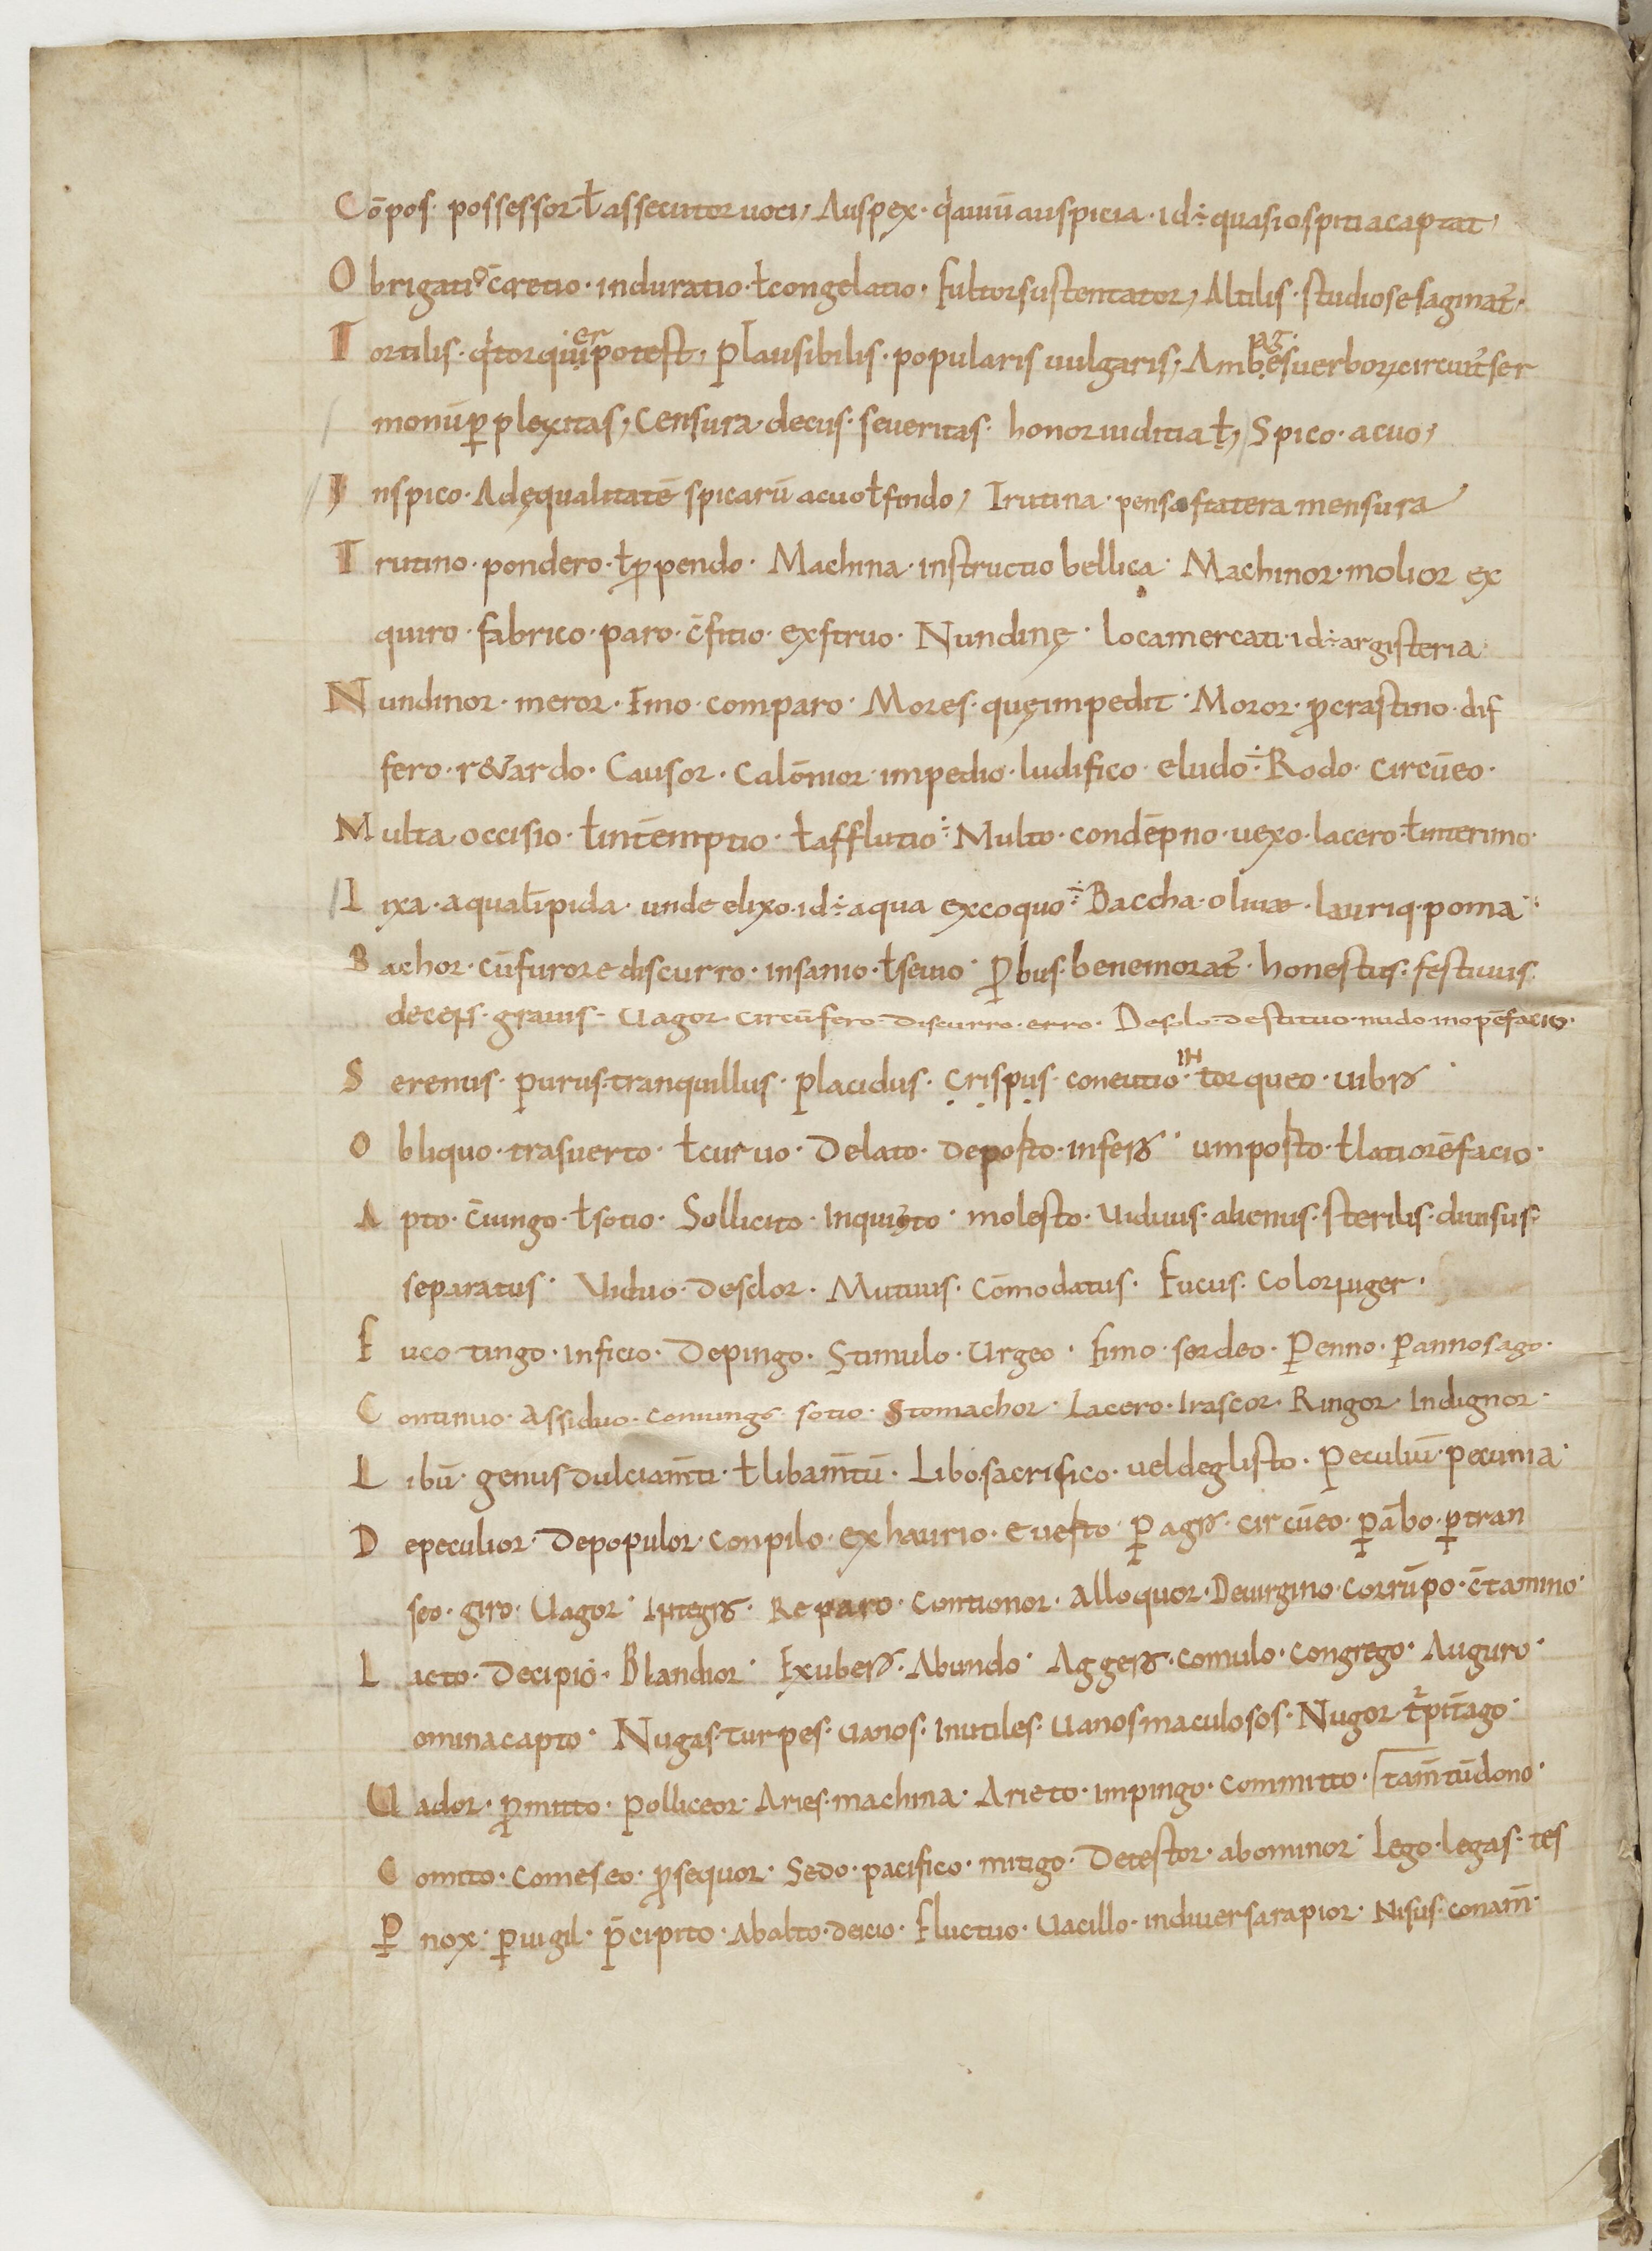 Cōpos· possessor ł assecutor uoci, Auspex· q̇ auiū auspicia· id÷ quasi ospitia captat,
Obrigatio c̄cretio· induratio· ł congelatio· Fultor sustentator, Altilis· studiose saginat᷒,
Tortilis· q̇ torquieri potest, Plausibilis· popularis uulgaris, Ambages uerboꝝ circuit᷒ ser
monū ꝑplexitas, Censura· decus· seueritas· honor iuditia ł, Spico· acuo,
Inspico· Adęqualitatē spicarū acuo ł findo, Trutina· pensa statera mensura
Trutino· pondero· ł ꝑpendo· Machina· instructio bellica· Machinor· molior ex
quiro· fabrico· paro· c̄fitio· exstruo· Nundinę· loca mercati· id÷ argisteria
Nundinor· meror· Emo· comparo· Mores· quę impedit· Moror· ꝓcrastino· dif
fero· r&ardo· Causor· Calōnior· impedio· ludifico· eludo· Rodo· circūeo·
Multa occisio· ł intēmptio· ł afflutio· Multo· condēpno· uexo· lacero· ł interimo·
Lixa· aqua līpida· unde elixo· id÷ aqua excoquo· Baccha· oliuae· lauriq· poma·
Bachor· cū furore discurro· insanio· ł seuio· ꝓbus· bene morat᷒· honestus· festiuus·
decens· grauis· Uagor circūfero· discurro· erro· Desolo· destituo· nudo· inopē facio·
Serenus· purus· tranquillus· placidus· Crispus· concutio· IN torqueo· uibro
Obliquo· trasuerto· ł curuo· Delato· deposto· infero· umposto· ł latiorē facio·
Apto· c̄iungo· ł sotio· Sollicito· Inquieto· molesto· Uiduus· alienus· sterilis· diuisus·
separatus· Uiduo· Desolor· Mutuus· Cōmodatus· Fucus· Color piger·
Fuco tingo· Inficio· Depingo· Stimulo· Urgeo· Fimo· sordeo· Penno· Pannos ago·
Continuo· Assiduo· coniungo· sotio· Stomachor· Lacero· Irascor· Ringor· Indignor·
Libū· genus dulciam̄ti· ł libam̄tū· Libo· sacrifico· uel deglisto· Peculiū· pecunia·
Depeculior· Depopulor· Conpilo· exhaurio· euesto· ꝑagro· circūeo· ꝑābo· ꝑtran
seo· giro· Uagor· Integro· Reparo· Contionor· alloquor· Deuirgino· corrūpo· c̄tamino·
Lacto· Decipio· Blandior· Exubero· Abundo· Aggero· comulo· congrego· Auguro·
omina capto· Nugas· turpes· uanos· Inutiles· uanos maculosos· Nugor
Uador· ꝓmitto· polliceor· Aries· machina· Arieto· impingo· committo· tam̄tū dono·
Comito· comes eo· ꝓsequor· Sedo· pacifico· mitigo· Detestor· abominor· Lego· legas· tes
ꝑnox· ꝑuigil· p̄cipito· Ab alto· deicio· Fluctuo· Uacillo· in diuersa rapior· Nisus· conam̄·